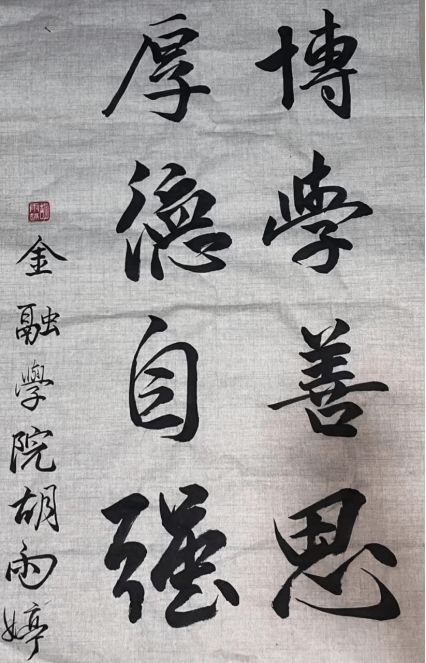 博學善思
厚德自强
金融學院胡雨婷